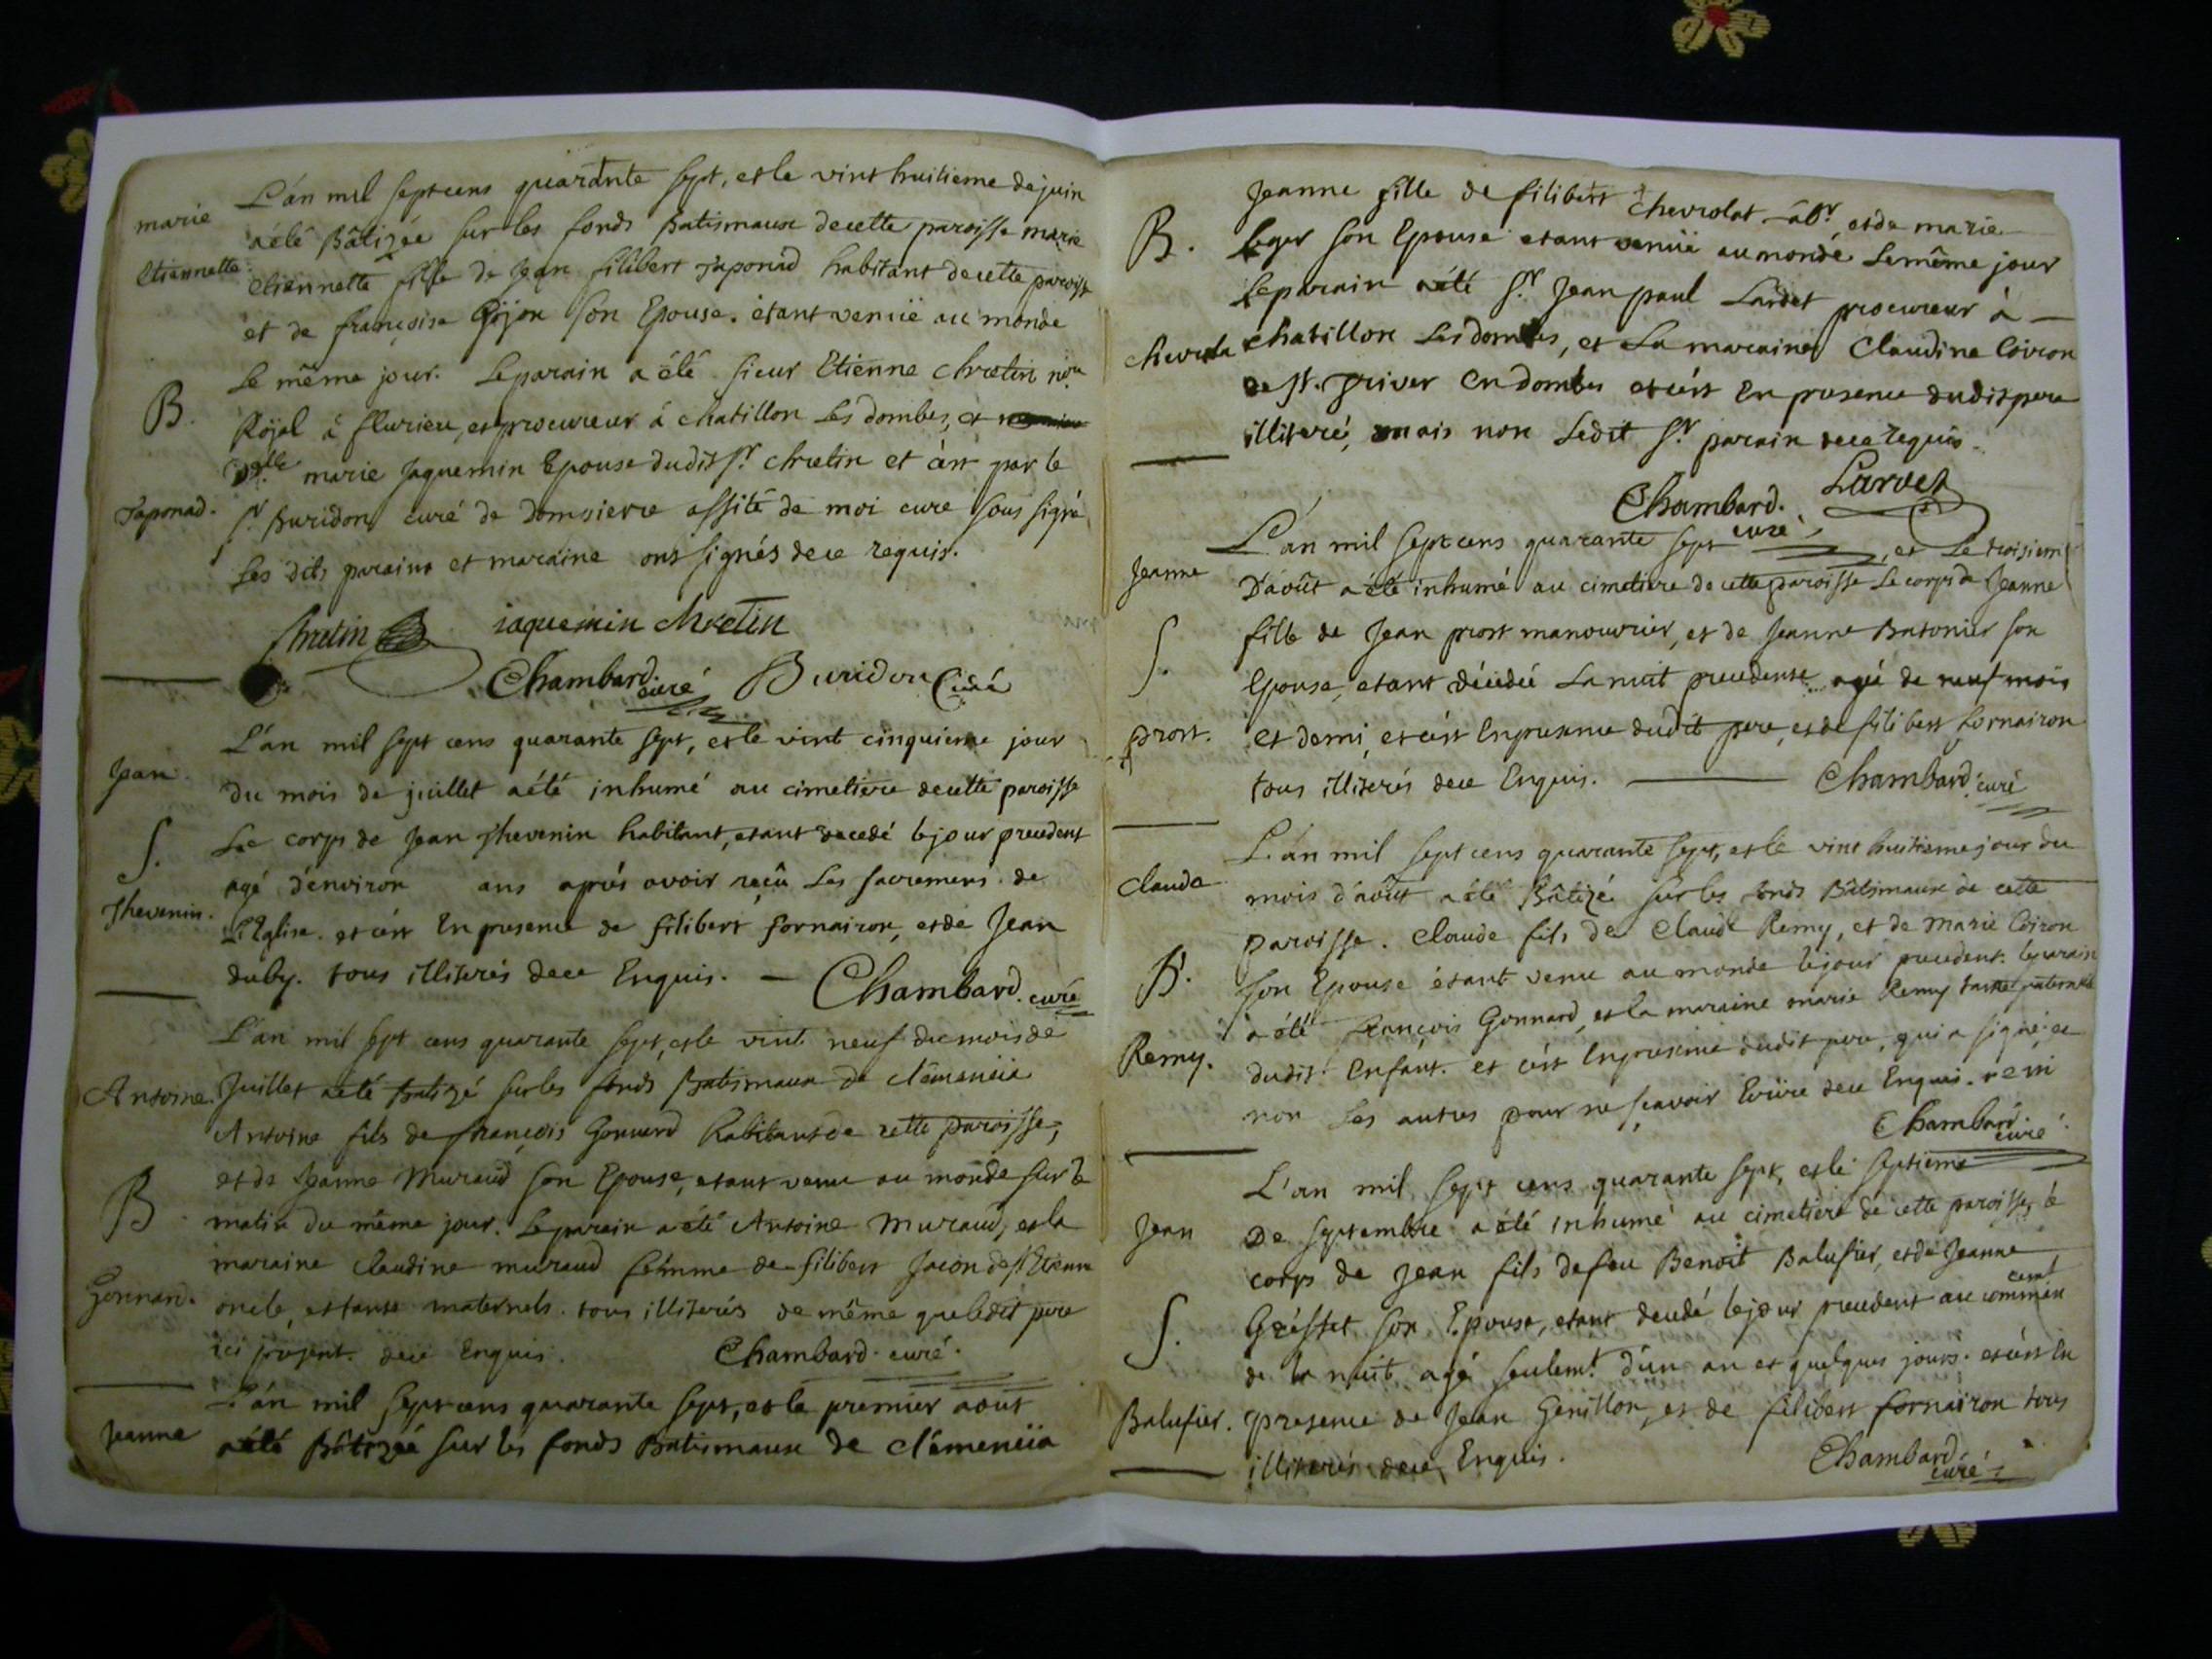 L'an mil sept cens quarante sept, et le vint huitieme de juin
marie
a été Bâtizée sur les fonds Batismaux de cette paroisse marie
Etiennette
Etiennette fille de Jean filibert Japonad habitant de cette paroisse
et de françoise Gojon son Epouse. étant venüe au monde
le même jour. Le parain a été sieur Etienne chretin
B.
Röjal à flurieu, et procureur à chatillon les dombes, et
marie Jaquemin Epouse dudit Sr. chretin et c'est par le
Japonad.
Sr Buridon curé de domsierre assité de moi curé sous signé
Les dits parains et maraine ont signés de ce requis.
Chretin
jaquemin chretin
Chambard. curé
Buridon Curé
L'an mil sept cens quarante sept, et le vint cinquieme jour
Jean
du mois de juillet a été inhumé au cimetiere de cette paroisse
Le corps de Jean Thevenin habitant, etant decedé le jour precedent
S.
agé d'environ ans aprés avoir reçû Les sacremens de
Thevenin.
L'Eglise. et c'est En presence de filibert fornairon, et de Jean
duby. tous illiterés de ce Enquis. — Chambard. curé
L'an mil sept cens quarante sept, et le vint neuf du mois de
Antoine.
Juillet a été Batizé sur les fonds Batismaux de clémencia
Antoine fils de françois Gonnard habitant de cette paroisse,
et de Jeanne Muraud son Epouse, etant venu au monde sur le
B
matin du même jour. Le parain a été Antoine Muraud, et la
maraine Claudine muraud femme de filibert Jacon de St Etienne
Gonnard.
oncle, et tante maternels. tous illiterés de même que ledit pere
ici present. de ce Enquis. Chambard. curé.
L'an mil sept cens quarante sept, et le premier aout
Jeanne
a été Bâtizée sur les fonds Batismaux de clémencia
Jeanne fille de filibert chevrolat et de marie
B.
Leger son Epouse etant venüe au monde Le même jour
Le parain a été Sr. Jean paul Lardet procureur à —
Chevrola
chatillon Les dombes, et La maraine Claudine Coiron
de St. Triver En dombes et c'est En presence dudit pere
illiteré, mais non Ledit Sr. parain de ce requis.
Chambard. curé
Lardet
L'an mil sept cens quarante sept, et Le troisieme
Jeanne
D'août a été inhumé au cimetiere de cette paroisse Le corps de Jeanne
fille de Jean prost manouvrier, et de Jeanne Batonier son
S.
Epouse, etant décédée La nuit precedente agé de neuf mois
prost.
et demi, et c'est En presence dudit pere, et de filibert fornairon
tous illiterés de ce Enquis. — Chambard. curé
L'an mil sept cens quarante sept, et le vint huitieme jour du
Claude
mois d'août a été Bâtizé sur les fonds Bâtismaux de cette
paroisse. Claude fils de Claude Remy, et de Marie Coiron
B.
son Epouse étant venu au monde le jour precedent. le parain
a été françois Gonnard, et la maraine marie Remy tante paternelle
Remy.
dudit Enfant. et c'est En presence dudit pere, qui a signé et
non Les autres pour ne sçavoir Ecrire de ce Enquis. remi
Chambard curé
L'an mil sept cens quarante sept, et le septieme
Jean
De septembre a été inhumé au cimetiere de cette paroisse, le
corps de Jean fils de feu Benoit Balufier, et de Jeanne
S.
Gréffet son Epouse, etant decedé le jour precedent au commencemt
de la nuit, agé seulemt. d'un an et quelques jours. et c'est En
Balufier.
presence de Jean Genillon, et de filibert fornairon tous
illiterés de ce Enquis.
Chambard curé